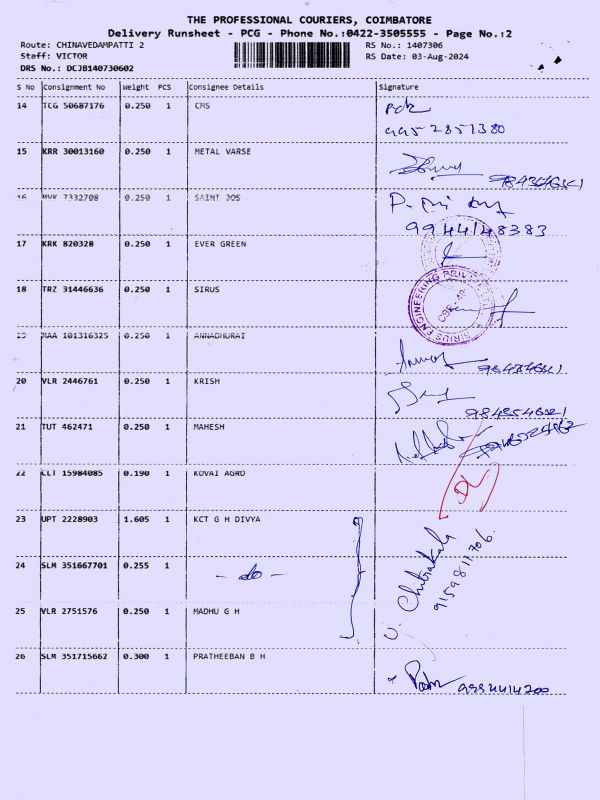 THE PROFESSIONAL COURIERS, COIMBATORE
Delivery Runsheet - PCG - Phone No.:0422-3505555 - Page No.:2
Route: CHINAVEDAMPATTI 2 RS No.: 1407306
Staff: VICTOR RS Date: 03-Aug-2024
DRS No.: DCJB140730602
S No Consignment No Weight PCS Consignee Details Signature
14 TCG 50687176 0.250 1 CMS
9952851380
15 KRR 30013160 0.250 1 METAL VARSE
16 MVK 7332708 0.250 1 SAINT JOS
9944148383
17 KRK 820328 0.250 1 EVER GREEN
18 TRZ 31446636 0.250 1 SIRUS
SIRIUS ENGINEERING PRIVATE
19 MAA 101316325 0.250 1 ANNADHURAI
20 VLR 2446761 0.250 1 KRISH
21 TUT 462471 0.250 1 MAHESH
22 CLT 15984085 0.190 1 KOVAI AGRO
DL
23 UPT 2228903 1.605 1 KCT G H DIVYA
24 SLM 351667701 0.255 1 - do -
U. Chitrakala
9159811706.
25 VLR 2751576 0.250 1 MADHU G H
26 SLM 351715662 0.300 1 PRATHEEBAN B H